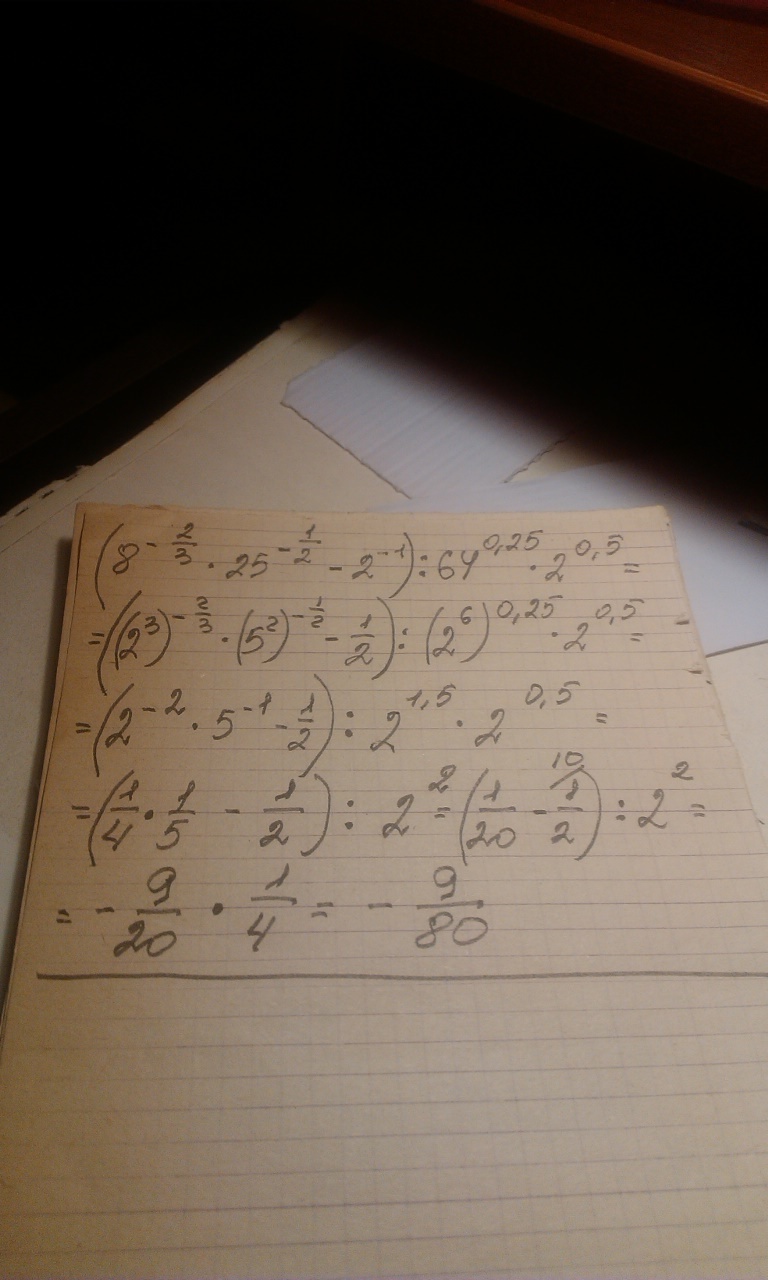 (8^(-2/3) · 25^(-1/2) - 2^(-1)) : 64^(0,25) · 2^(0,5) =
= ((2^3)^(-2/3) · (5^2)^(-1/2) - 1/2) : (2^6)^(0,25) · 2^(0,5) =
= (2^(-2) · 5^(-1) - 1/2) : 2^(1,5) · 2^(0,5) =
= (1/4 · 1/5 - 1/2) : 2^2 = (1/20 - 1/2 ^10) : 2^2 =
= - 9/20 · 1/4 = - 9/80